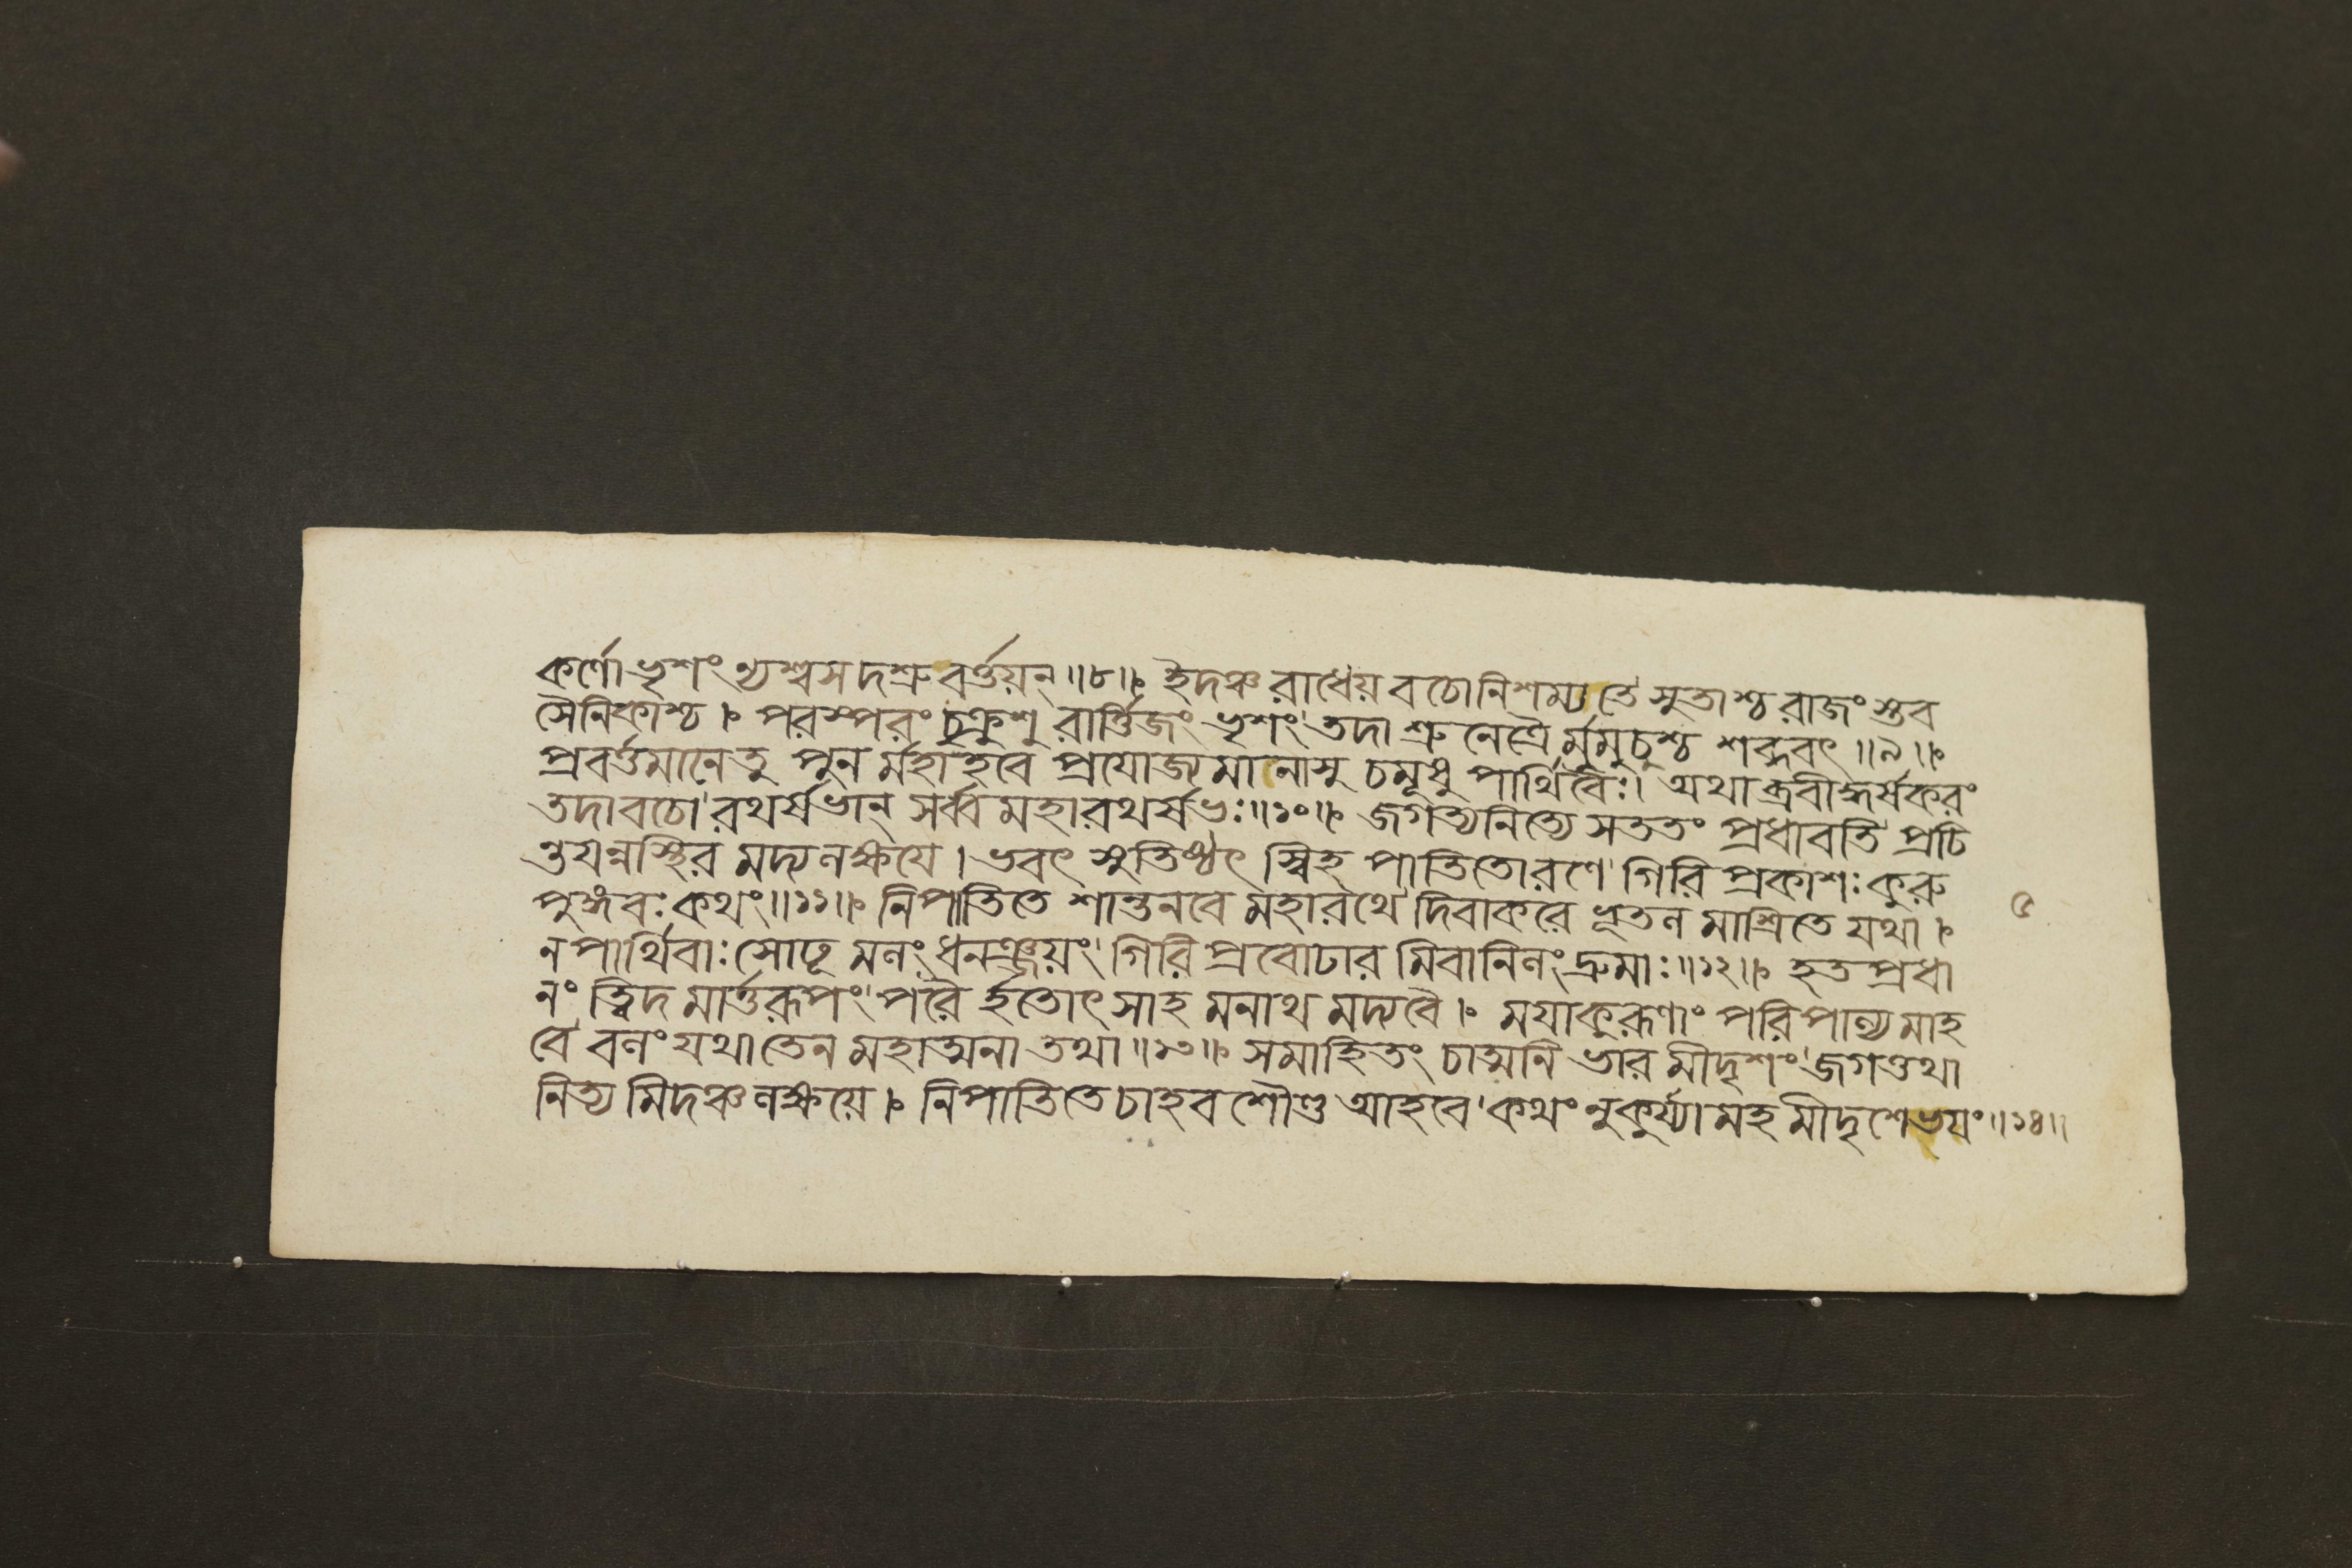 কর্ণো ভৃশং ন্যশ্বস দশ্রু বর্ত্তয়ন্ ॥৮॥ ইদঞ্চ রাধেয় বচো নিশম্য তে সুতাশ্চ রাজং স্তব
সৈনিকাশ্চ । পরস্পরং চুক্রুশু রার্ত্তিজং ভৃশং তদা শ্রু নেত্রৈ র্মুমুচুশ্চ শব্দবৎ ॥৯॥
প্রবর্ত্তমানে তু পুন র্মহাহবে প্রযোজ্য মানাসু চমূষু পার্থিবৈঃ। অথাব্রবীদ্ধর্ষকরং
তদা বচো রথর্ষভান্ সর্ব্ব মহারথর্ষভঃ॥১০॥ জগত্যনিত্যে সততং প্রধাবতি প্রচি
ন্তয়ন্নস্থির মদ্য লক্ষয়ে । ভবৎ সু তিষ্ঠৎ স্বিহ পাতিতো রণে গিরি প্রকাশঃ কুরু
পুঙ্গবঃ কথং॥১১॥ নিপাতিতে শান্তনবে মহারথে দিবাকরে ভূতল মাশ্রিতে যথা ।
ন পার্থিবাঃ সোঢূ মলং ধনঞ্জয়ং গিরি প্রবোঢার মিবানিলং দ্রুমাঃ॥১২॥ হত প্রধা
নং ত্বিদ মার্ত্তরূপং পরৈ র্হতোৎ সাহ মনাথ মদ্য বৈ । ময়া কুরূণাং পরিপাল্য মাহ
বে বলং যথা তেন মহাত্মনা তথা ॥১৩॥ সমাহিতং চাত্মনি ভার মীদৃশং জগত্তথা
নিত্য মিদঞ্চ লক্ষয়ে । নিপাতিতে চাহব শৌণ্ড আহবে কথং নু কুর্য্যা মহ মীদৃশে ভয়ং॥১৪॥
৫